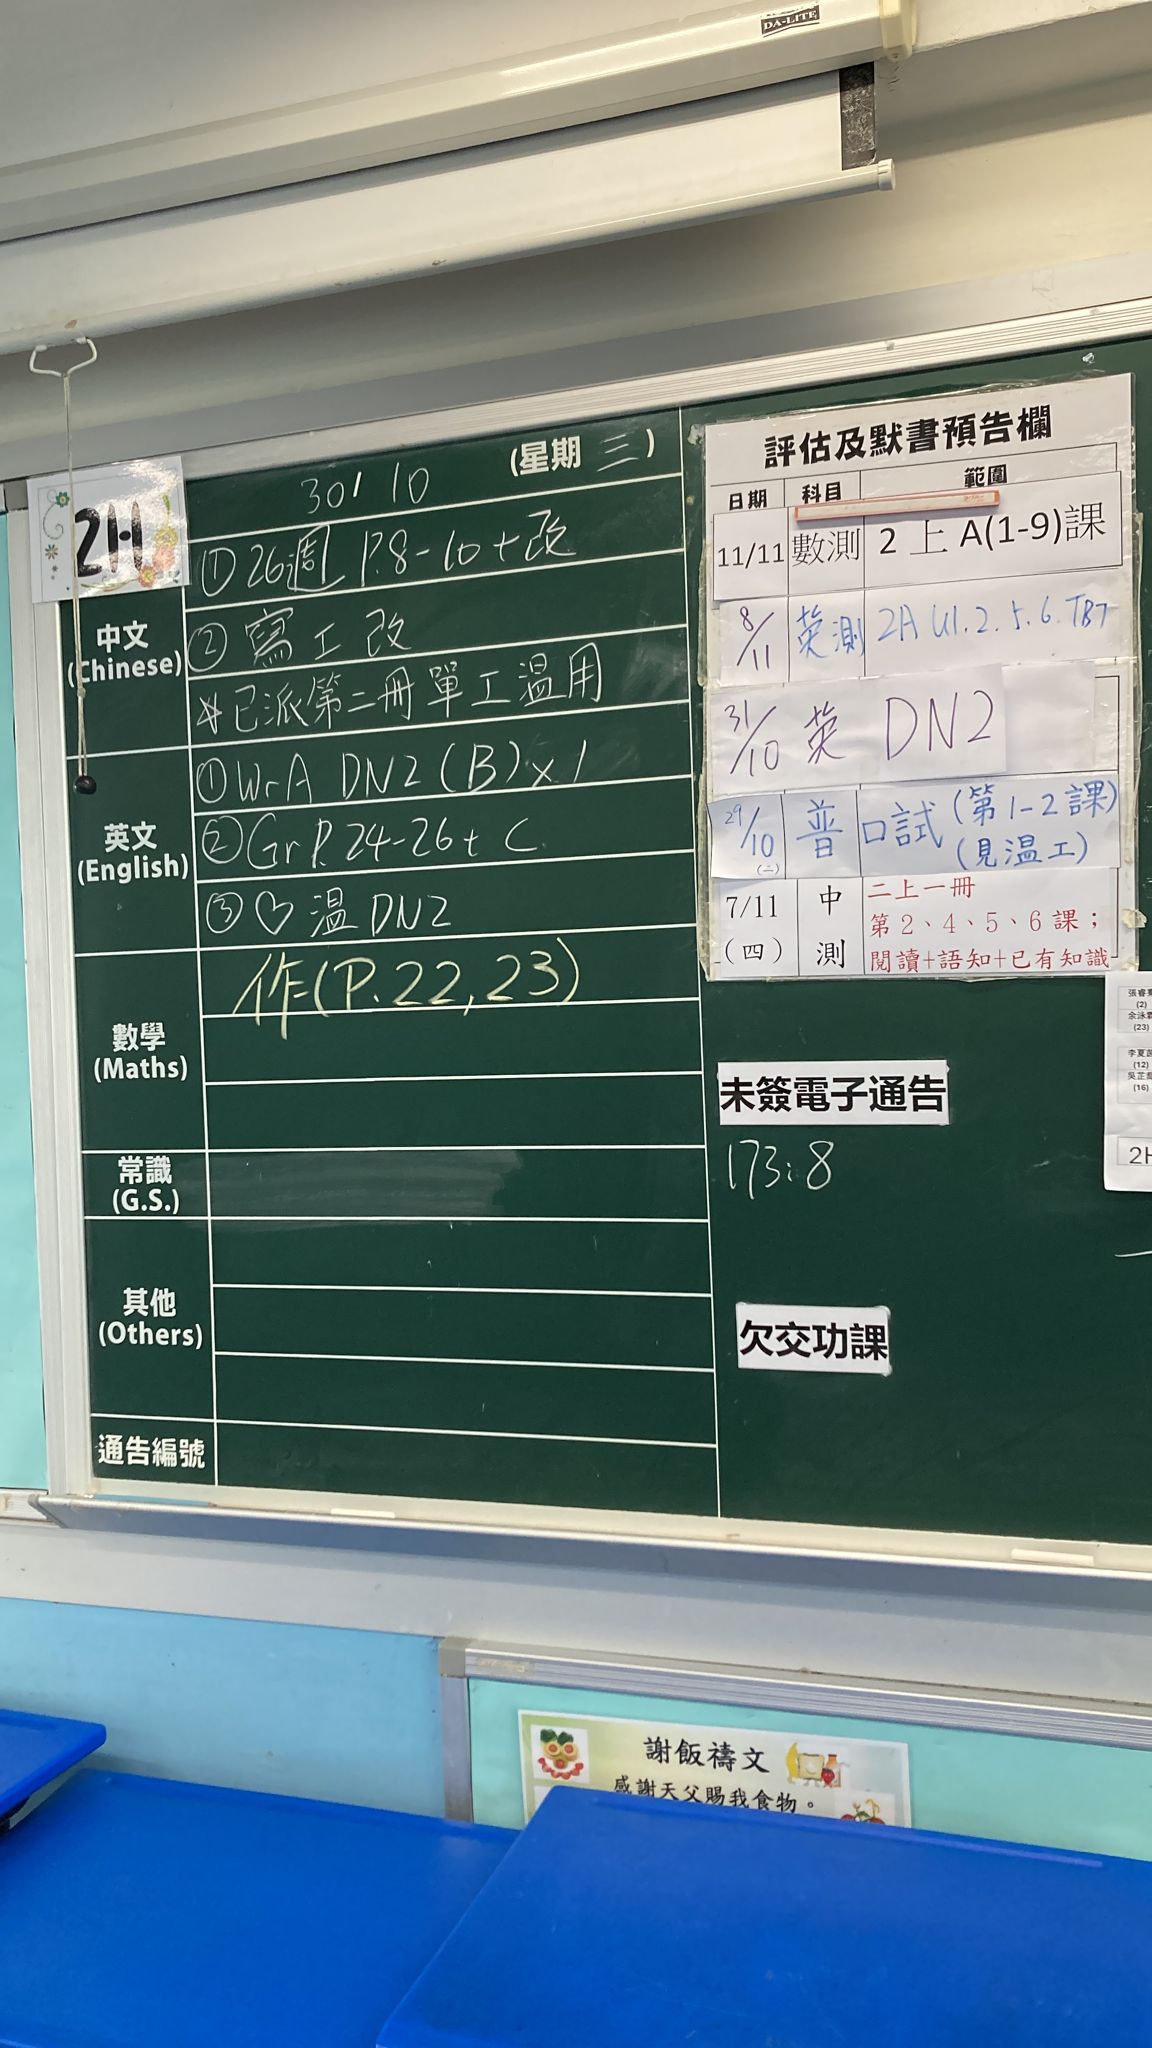 DA-LITE
2H
30/10 (星期 三)
中文
(Chinese)
①26週 P.8-10+改
②寫工改
*已派第二冊單工溫用
英文
(English)
①WrA DN2 (B)x1
②Gr P.24-26+ C
③♡溫DN2
數學
(Maths)
作(P.22,23)
常識
(G.S.)
其他
(Others)
通告編號
評估及默書預告欄
日期 科目 範圍
11/11 數測 2上A(1-9)課
8/11 英測 2A U1.2.5.6.TB7
31/10 英 DN2
29/10 (二) 普 口試(第1-2課)
(見溫工)
7/11 (四) 中測 二上一冊
第2、4、5、6課；
閱讀+語知+已有知識
未簽電子通告
173:8
欠交功課
(2)
(23)
李夏
(12)
(16)
2H
謝飯禱文
感謝天父賜我食物。